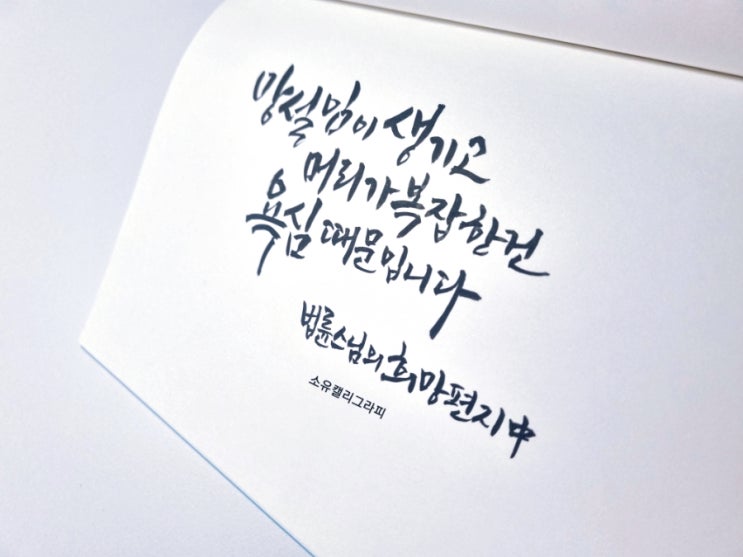 망설임이 생기고
머리가 복잡한건
욕심 때문입니다
법륜스님의 희망편지中
소유캘리그라피